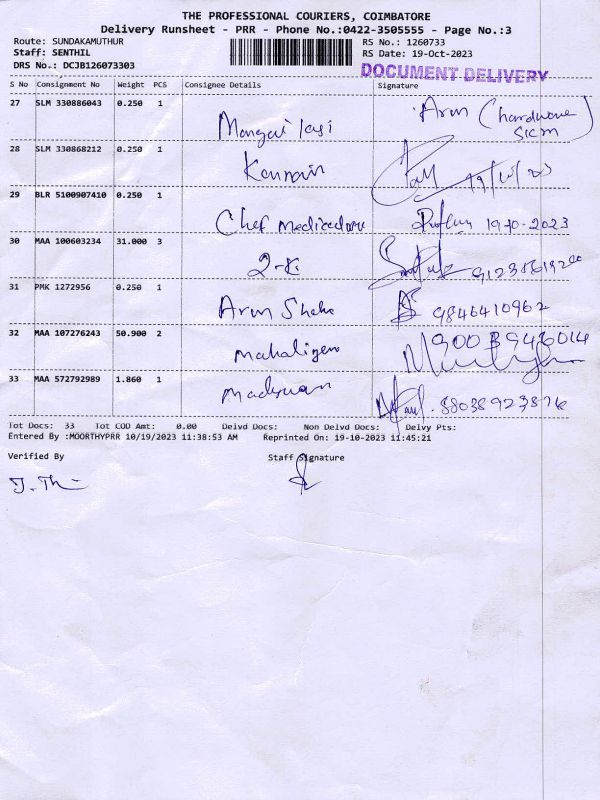 THE PROFESSIONAL COURIERS, COIMBATORE
Delivery Runsheet - PRR - Phone No.:0422-3505555 - Page No.:3
Route: SUNDAKAMUTHUR RS No.: 1260733
Staff: SENTHIL RS Date: 19-Oct-2023
DRS No.: DCJB126073303
DOCUMENT DELIVERY
S No Consignment No Weight PCS Consignee Details Signature
27 SLM 330886043 0.250 1 Arun (hardware
28 SLM 330868212 0.250 1 Kannain
29 BLR 5100907410 0.250 1 Chef 19-10-2023
30 MAA 100603234 31.000 3 2-K
31 PMK 1272956 0.250 1 Arun 9846410962
32 MAA 107276243 50.900 2
33 MAA 572792989 1.860 1
Tot Docs: 33 Tot COD Amt: 0.00 Delvd Docs: Non Delvd Docs: Delvy Pts:
Entered By :MOORTHYPRR 10/19/2023 11:38:53 AM Reprinted On: 19-10-2023 11:45:21
Verified By Staff Signature